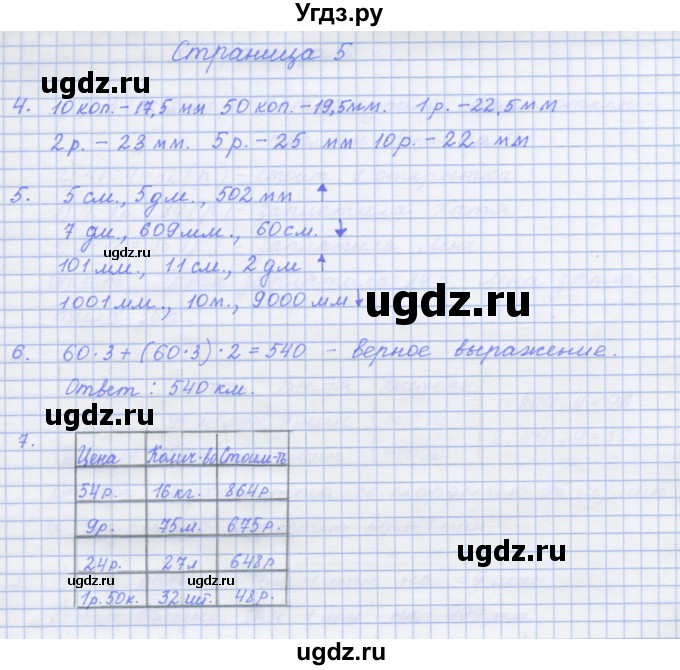 Угдз.ру
Страница 5
ugdz.ru
4. 10 коп. – 17,5 мм 50 коп. – 19,5 мм. 1 р. – 22,5 мм
2 р. – 23 мм. 5 р. – 25 мм 10 р. – 22 мм
ugdz.ru
5. 5 см., 5 дм., 502 мм ↑
7 дм., 609 мм., 60 см. ↓
ugdz.ru
101 мм., 11 см., 2 дм ↑
1001 мм., 10 м., 9000 мм ↓
ugdz.ru
6. 60·3+(60·3)·2=540 – верное выражение.
Ответ: 540 км.
ugdz.ru
7.
Цена Колич-во Стоим-ть
54 р. 16 кг. 864 р
9 р. 75 м. 675 р.
24 р. 27 л 648 р
ugdz.ru
ugdz.ru ugdz.ru
1 р. 50 к. 32 шт. 48 р.
ugdz.ru